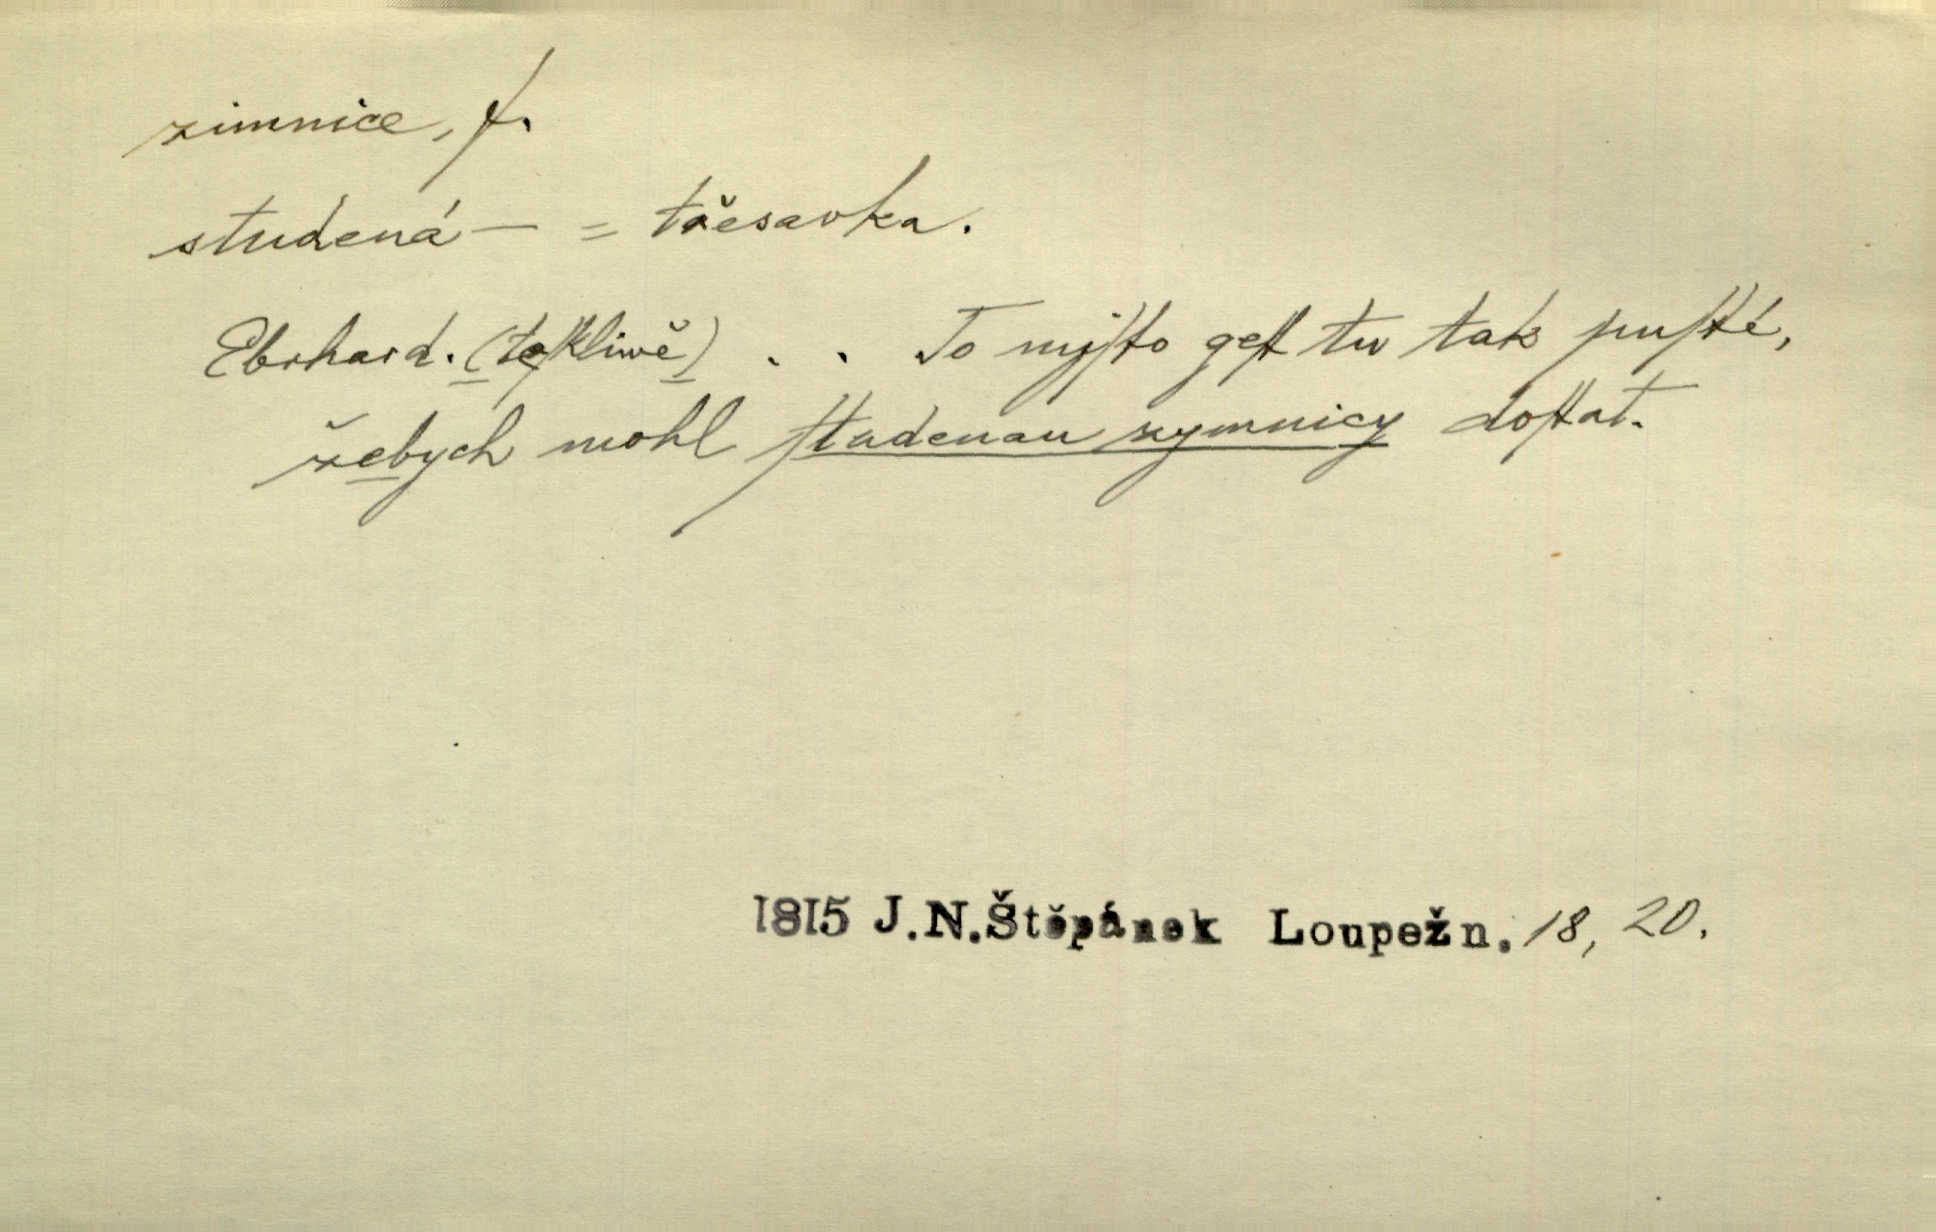 zimnice, f.
studená — = třesavka.
Eberhard. (teſkliwě) . . To mjſto geſt tu tak puſté,
žebych mohl ſtudenau zymnicy doſtat.
1815 J.N.Štěpánek Loupežn. 18, 20.